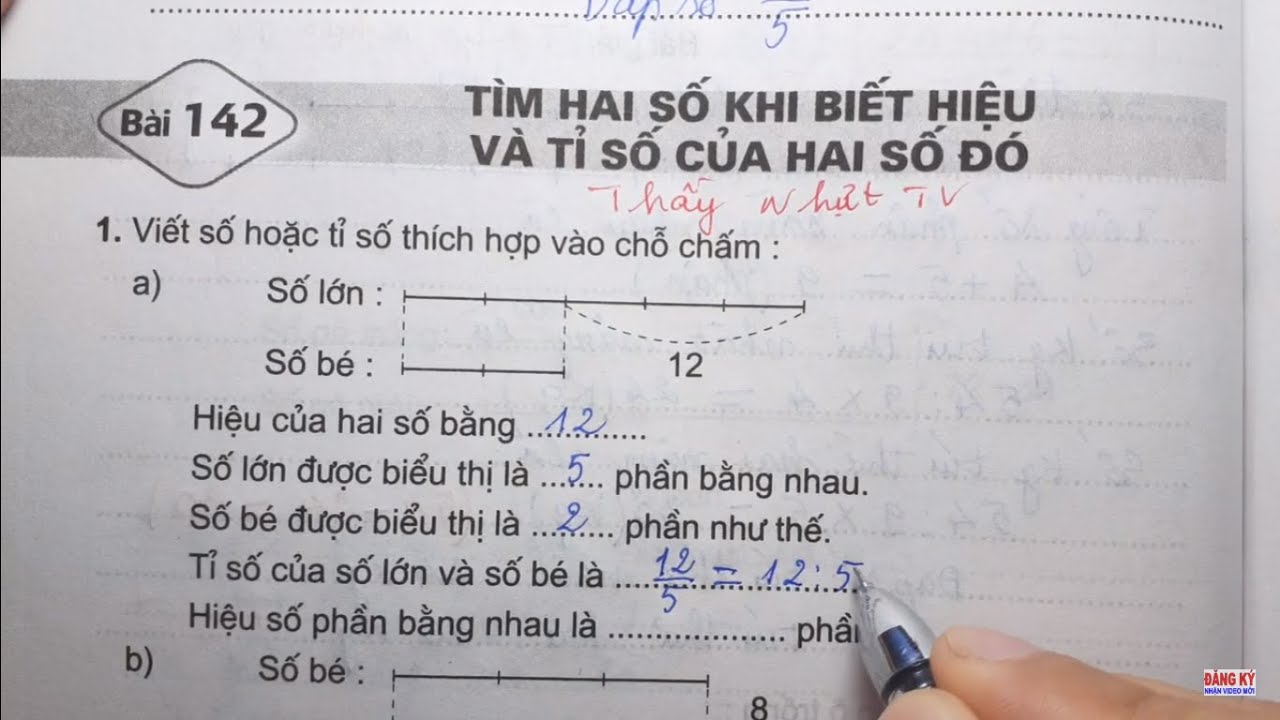 Đáp số
5
Bài 142
TÌM HAI SỐ KHI BIẾT HIỆU
VÀ TỈ SỐ CỦA HAI SỐ ĐÓ
Thầy Nhựt TV
1. Viết số hoặc tỉ số thích hợp vào chỗ chấm :
a) Số lớn :
Số bé : 12
Hiệu của hai số bằng ...12...
Số lớn được biểu thị là ...5... phần bằng nhau.
Số bé được biểu thị là ...2... phần như thế.
Tỉ số của số lớn và số bé là ...12/5 = 12 : 5
Hiệu số phần bằng nhau là .................... phầ
b) Số bé :
8
ĐĂNG KÝ
NHẬN VIDEO MỚI